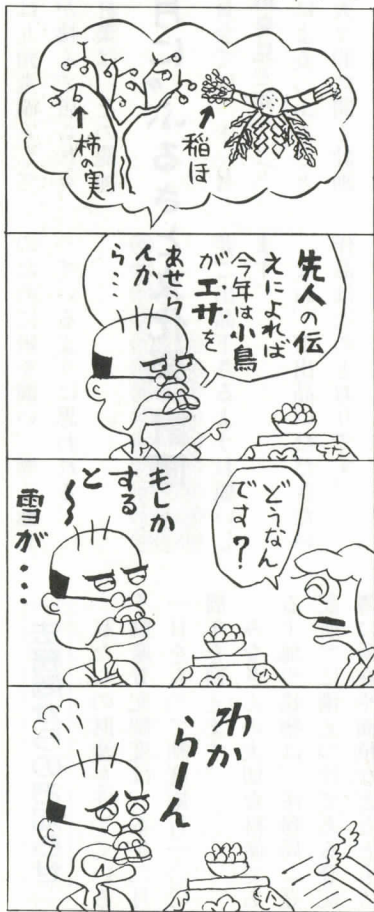 稲ほ
柿の実
先人の伝
えによれば
今年は小鳥
がエサを
あせら
んか
ら…
どうなん
です?
もしか
する
と〜
雪が…
わか
らーん